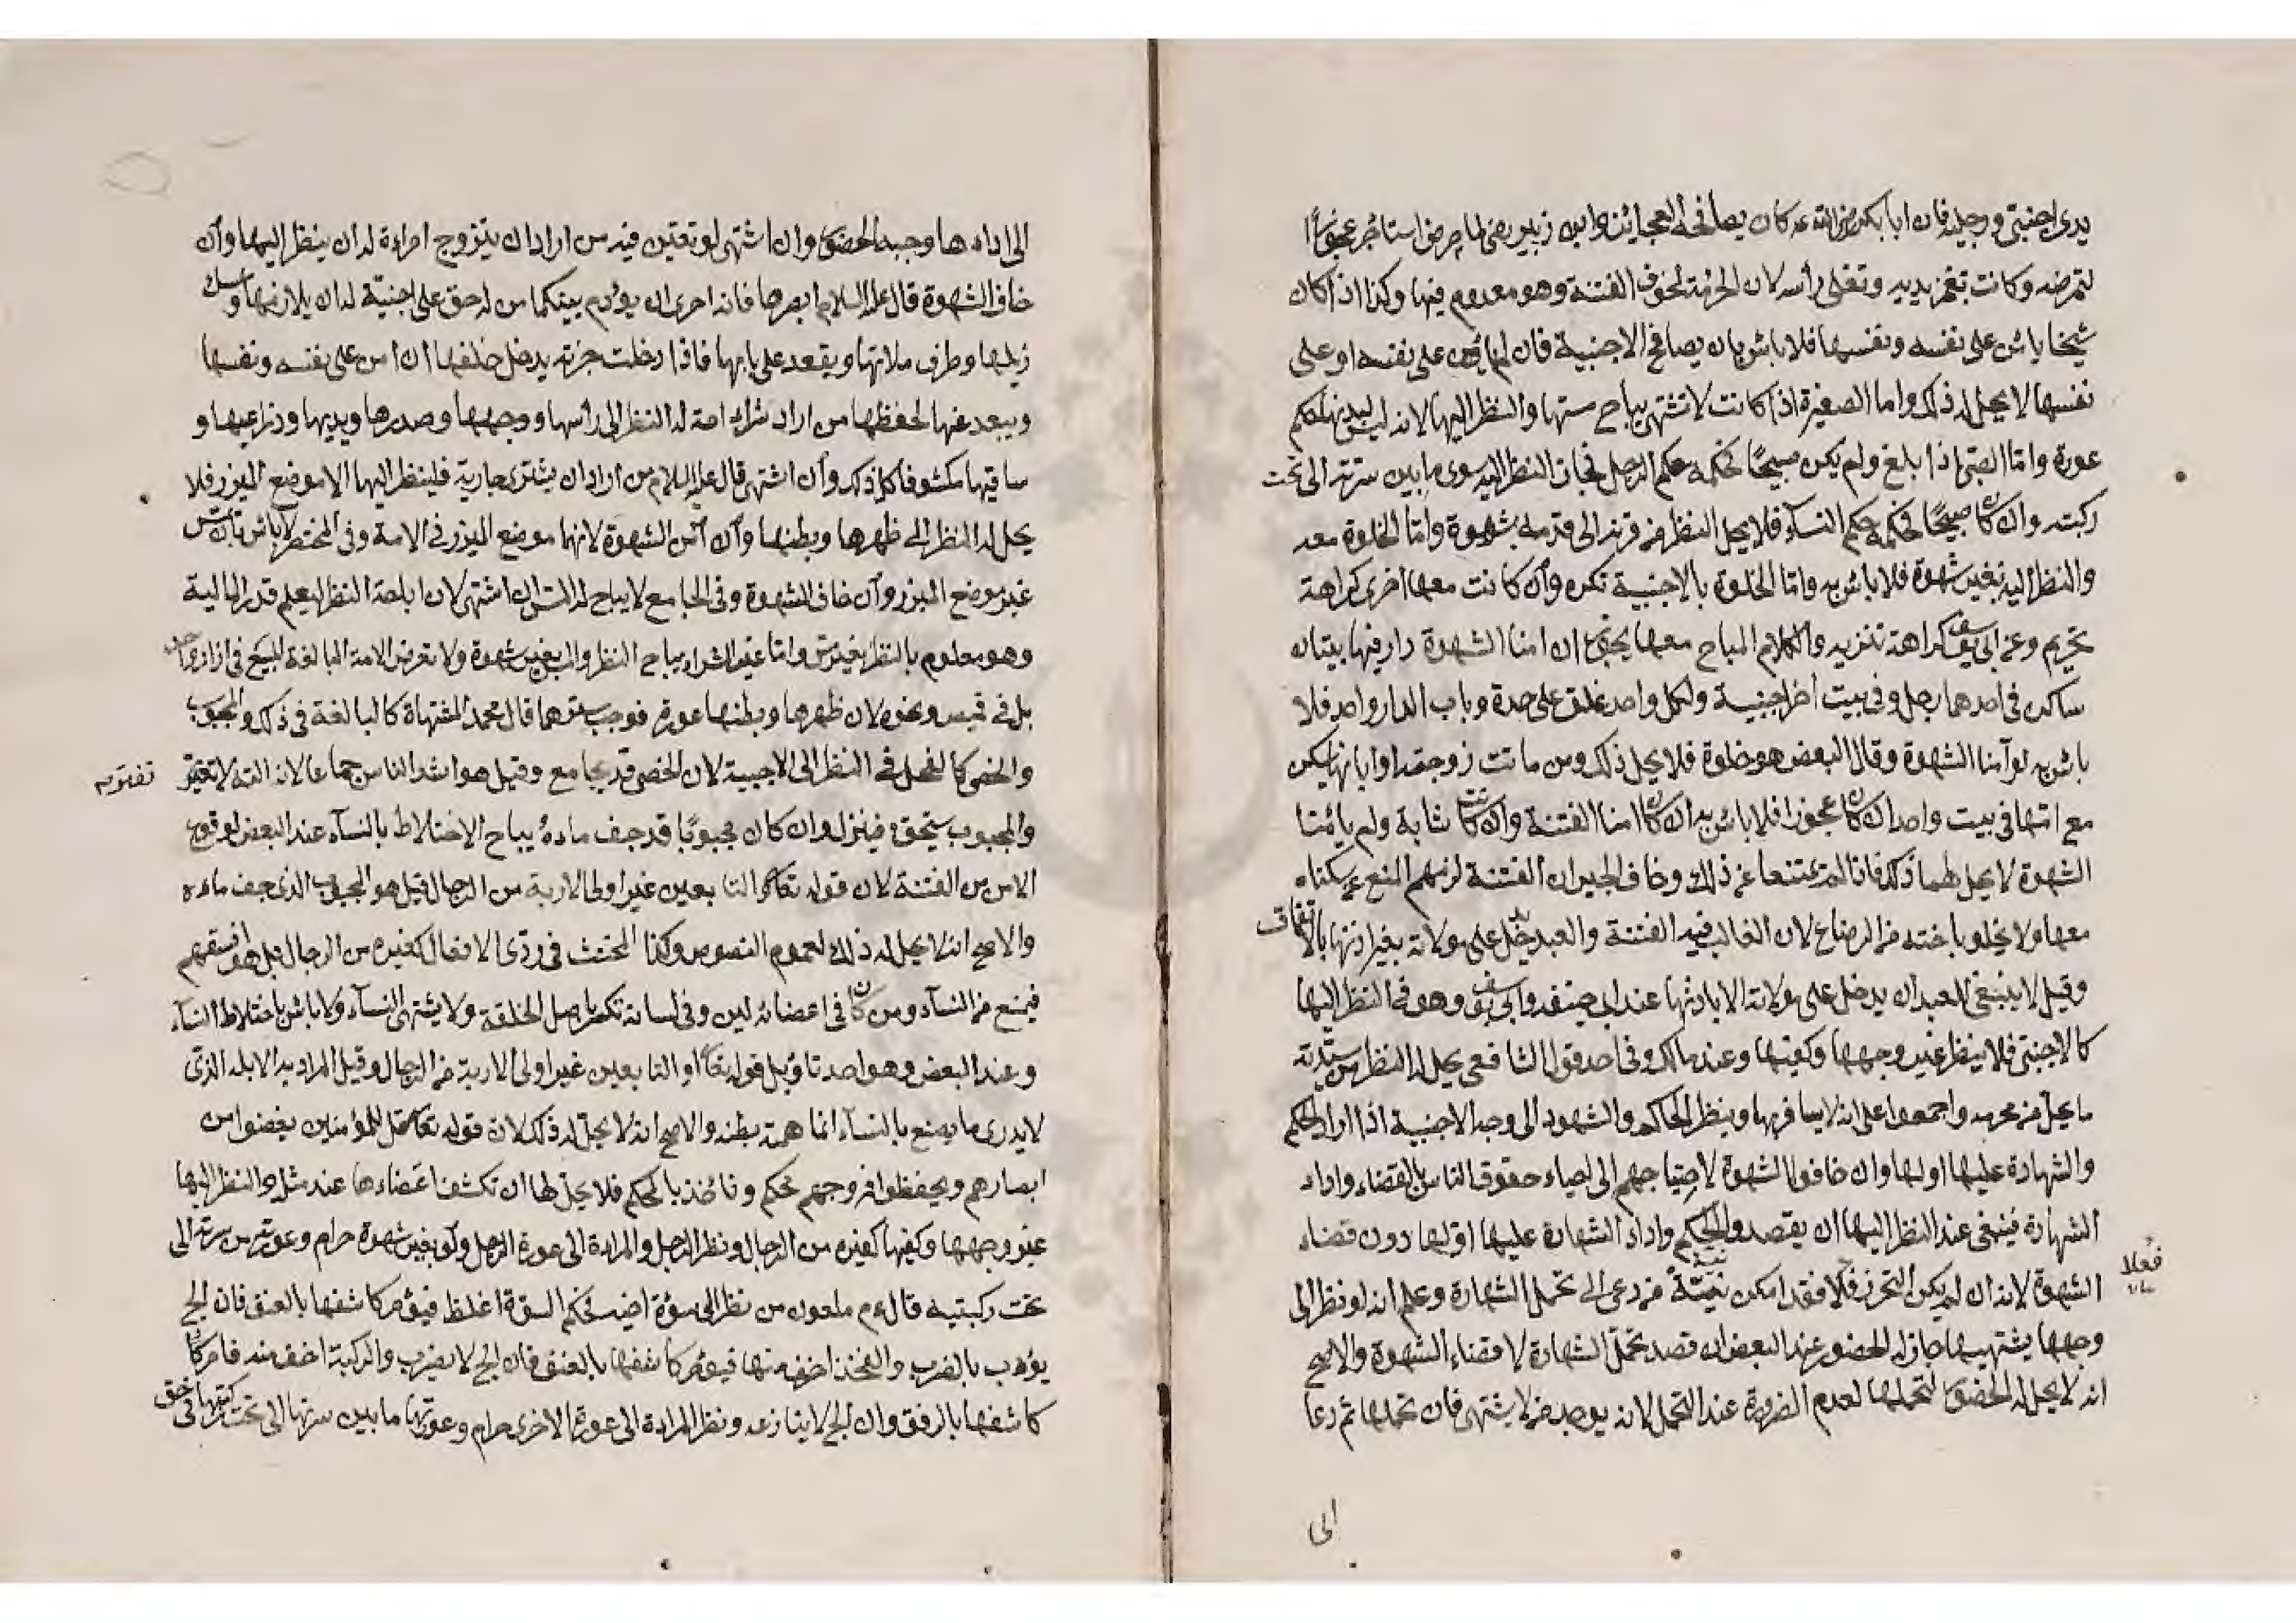 يدى اجنبى ورجليه فان ابا بكر رضى الله عنه كان يصافحه العجائز وابن زبير رضى لما مرض استأجر عجوزاً
لتمرضه وكانت تغمز يديه وتفلى رأسه لان الحرمة لخوف الفتنة وهو معدوم فيها وكذا اذا كان
شيخا يأمن على نفسه ونفسها فلا بأس بان يصافح الاجنبية فان لم يأمن على نفسه او على
نفسها لا يحل له ذلك واما الصغيرة اذا كانت لا تشتهى يباح مسها والنظر اليها لانه ليس لبدنها حكم
عورة واما الصبى اذا بلغ ولم يكن صبيحا فحكمه حكم الرجل فجاز النظر اليه سوى ما بين سرته الى تحت
ركبته وان كان صبيحا فحكمه حكم النساء فلا يحل النظر من قرنه الى قدمه بشهوة واما الخلوة معه
والنظر اليه بغير شهوة فلا بأس به واما الخلوة بالاجنبية تكره وان كانت معها اخرى كراهة
تحريم وعن ابى يوسف كراهة تنزيه والكلام المباح معها يجوز ان امنا الشهوة دار فيها بيتان
ساكن فى احدهما رجل وفى بيت اخر اجنبية ولكل واحد غلق على حدة وباب الدار واحد فلا
بأس به لو آمنا الشهوة وقال البعض هو خلوة فلا يحل ذلك ومن ماتت زوجته او ابانها يسكن
مع امها فى بيت واحد ان كان عجوزا فلا بأس به ان كانا امنا الفتنة وان كانت شابة ولم يأمنا
الشهوة لا يحل لهما ذلك فاذا لم يمتنعا عن ذلك وخاف الجيران الفتنة لزمهم المنع عن سكناه
معها ولا يخلو باخته من الرضاع لان الغالب فيه الفتنة والعبد يدخل على مولاته بغير اذنها بالاتفاق
وقيل لا ينبغى للعبد ان يدخل على مولاته الا باذنها عند ابى حنيفه وابى يوسف وهو فى النظر اليها
كالاجنبى فلا ينظر غير وجهها وكفيها وعند مالك وفى احد قولى الشافعى يحل له النظر من سيدته
ما يحل من محرمه واجمعوا على انه لا يسافر بها وينظر الحاكم والشهود الى وجه الاجنبية اذا اراد الحكم
والشهادة عليها او لها وان خافوا الشهوة لاحتياجهم الى احياء حقوق الناس بالقضاء واداء
الشهادة فينبغى عند النظر اليها ان يقصدوا الحكم واداء الشهادة عليها او لها دون قضاء
الشهوة لانه ان لم يكن التحرز فعلا فقد امكن نية من دعى الى تحمل الشهادة وعلم انه لو نظر الى
فعلا
وجهها يشتهيها جاز له الحضور عند البعض ان قصد تحمل الشهادة لا قضاء الشهوة والاصح
انه لا يحل له الحضور لتحملها لعدم الضرورة عند التحمل لانه يوجد من لا يشتهى فان تحملها ثم دعا
الى
الى اداءها وجب الحضور وان اشتهى لو تعين فيه من اراد ان يتزوج امراءة له ان ينظر اليها وان
خاف الشهوة قال عليه السلام ابصرها فانه احرى ان يؤدم بينكما من له حق على اجنبية له ان يلازمها ويمسك
ذيلها وطرف ملائتها ويقعد على بابها فاذا دخلت خربة يدخل خلفها ان امن على نفسه ونفسها
ويبعد عنها لحفظها من اراد شراء امة له النظر الى رأسها ووجهها وصدرها ويديها وذراعيها و
ساقيها مكشوفا كل ذلك وان اشتهى قال عليه السلام من اراد ان يشترى جارية فلينظر اليها الا موضع الميزر فلا
يحل له النظر الى ظهرها وبطنها وان امن الشهوة لانهما موضع الميزر فى الامة وفى المختصر لا بأس بان يمس
غير موضع الميزر وان خاف الشهوة وفى الجامع لا يباح له المس ان اشتهى لان اباحة النظر ليعلم قدر المالية
وهو معلوم بالنظر بغير مس واما غير الشراء يباح النظر والمس بغير شهوة ولا تعرض الامة البالغة للبيع فى ازار واحد
بل فى قميص ونحوه لان ظهرها وبطنها عورة فوجب سترهما قال محمد المشتهاة كالبالغة فى ذلك والمجبوب
والخصى كالفحل فى النظر الى الاجنبية لان الخصى قد يجامع وقيل هو اشد الناس جماعا لان الته لا تفتر
والمجبوب يستحق فينزل وان كان مجبوبا قد جف ماءه يباح الاختلاط بالنساء عند البعض لوقوع
الامن من الفتنة لان قوله تعالى او التابعين غير اولى الاربة من الرجال قيل هو المجبوب الذى جف ماءه
والاصح انه لا يحل له ذلك لعموم النصوص وكذا المخنث فى ردى الافعال كغيره من الرجال بل هو افسقهم
فيمنع من النساء ومن كان فى اعضائه لين وفى لسانه تكسر باصل الخلقة ولا يشتهى النساء ولا بأس باختلاط النساء
وعند البعض وهو احد تاويل قوله تعالى او التابعين غير اولى الاربة من الرجال وقيل المراد به الابله الذى
لا يدرى ما يصنع بالنساء انما همته بطنه والاصح انه لا يحل له ذلك لان قوله تعالى قل للمؤمنين يغضوا من
ابصارهم ويحفظوا فروجهم محكم ونأخذ بالمحكم فلا يحل لها ان تكشف اعضاءها عند مثله والنظر اليها
غير وجهها وكفيها كغيره من الرجال ونظر الرجل والمراءة الى عورة الرجل ولو بغير شهوة حرام وعورته من سرته الى
تحت ركبتيه قال عم ملعون من نظر الى سؤة اخيه فحكم السوءة اغلظ فيؤمر كاشفها بالعنف فان لج
يؤدب بالضرب والفخذ اخف منها فيؤمر كاشفها بالعنف فان لج لا يضرب والركبة اخف منه فامر كان
كاشفها بالرفق وان لج لا ينازعه ونظر المراءة الى عورة الاخرى حرام وعورتها ما بين سرتها الى تحت ركبتها